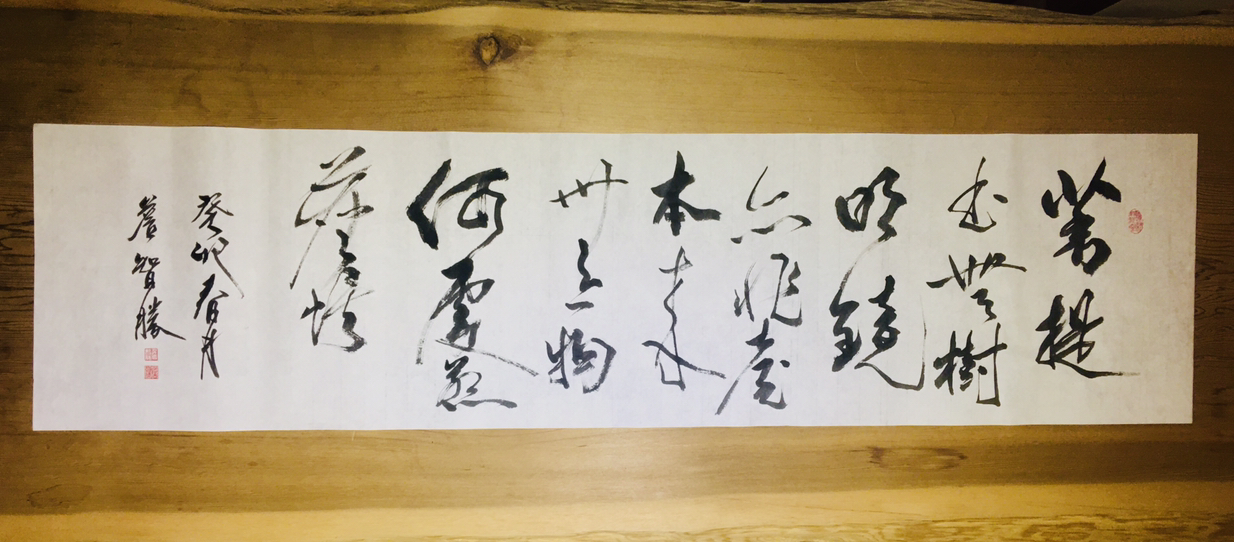 菩提
本無樹
明鏡
亦非臺
本來
無一物
何處惹
塵埃
癸卯春月
詹智勝